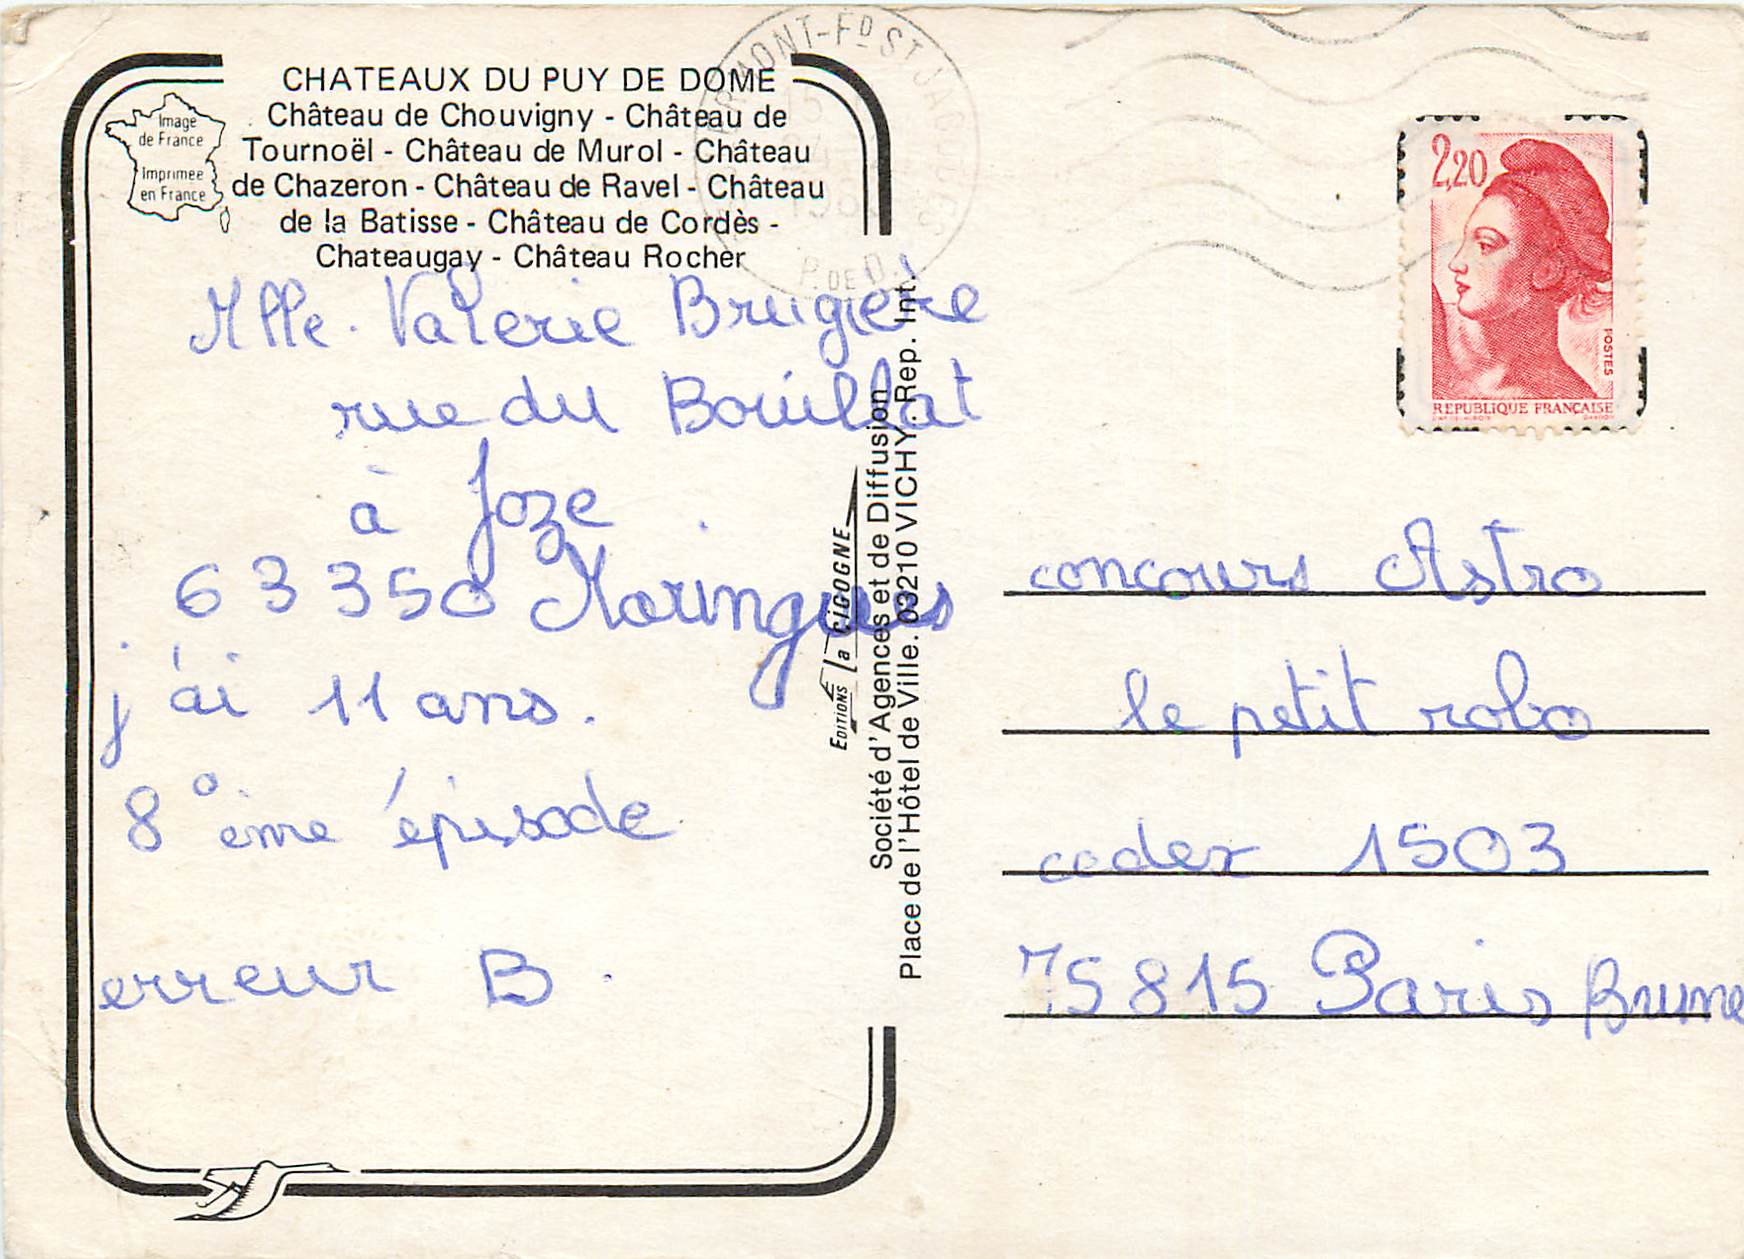 CHATEAUX DU PUY DE DOME
Château de Chouvigny - Château de
Tournoël - Château de Murol - Château
de Chazeron - Château de Ravel - Château
de la Batisse - Château de Cordès -
Chateaugay - Château Rocher
Image
de France
Imprimée
en France
Mlle. Valérie Brugière
rue du Bouillat
à Joze
63350 Maringues
j'ai 11 ans.
8° ème épisode
erreur B.
EDITIONS la CIGOGNE
Société d'Agences et de Diffusion
Place de l'Hôtel de Ville. 03210 VICHY. Rep. Int.
CLERMONT-FD ST JACQUES
P. DE D.
2,20
POSTES
REPUBLIQUE FRANÇAISE
concours Astro
le petit robo
cedex 1503
75815 Paris Brune